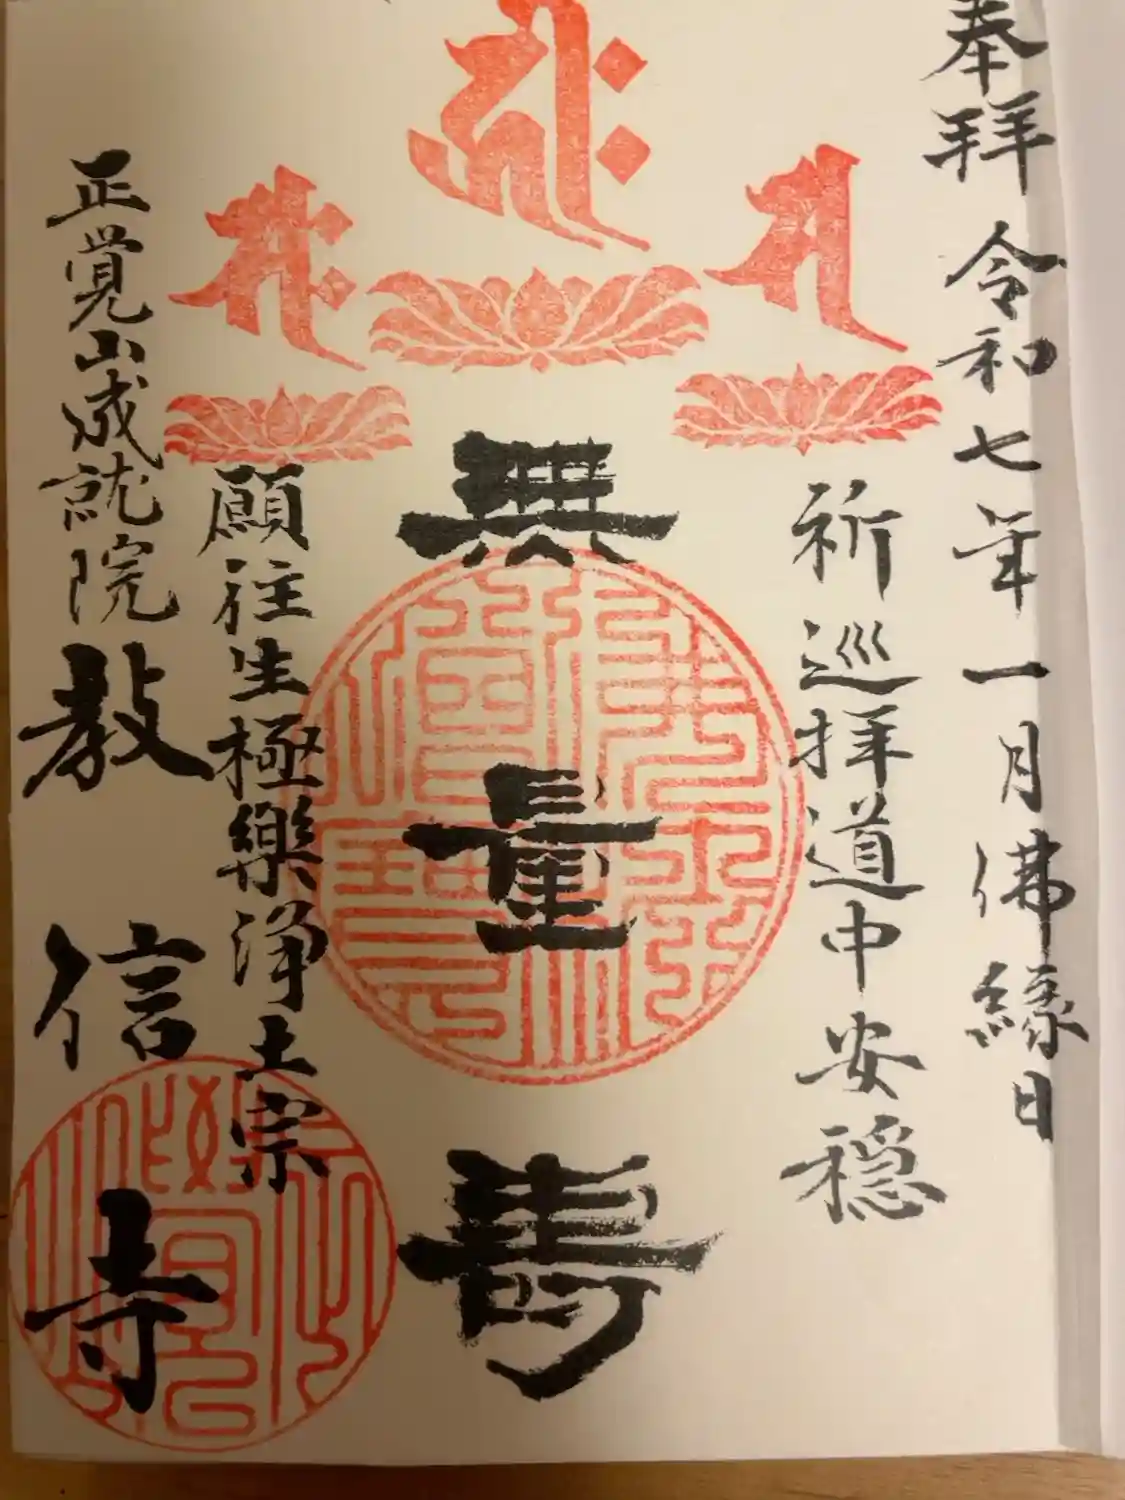 奉拜 令和七年一月佛縁日
祈巡拝道中安穏
無量壽
願往生極樂浄土宗
正覚山成就院 教信寺